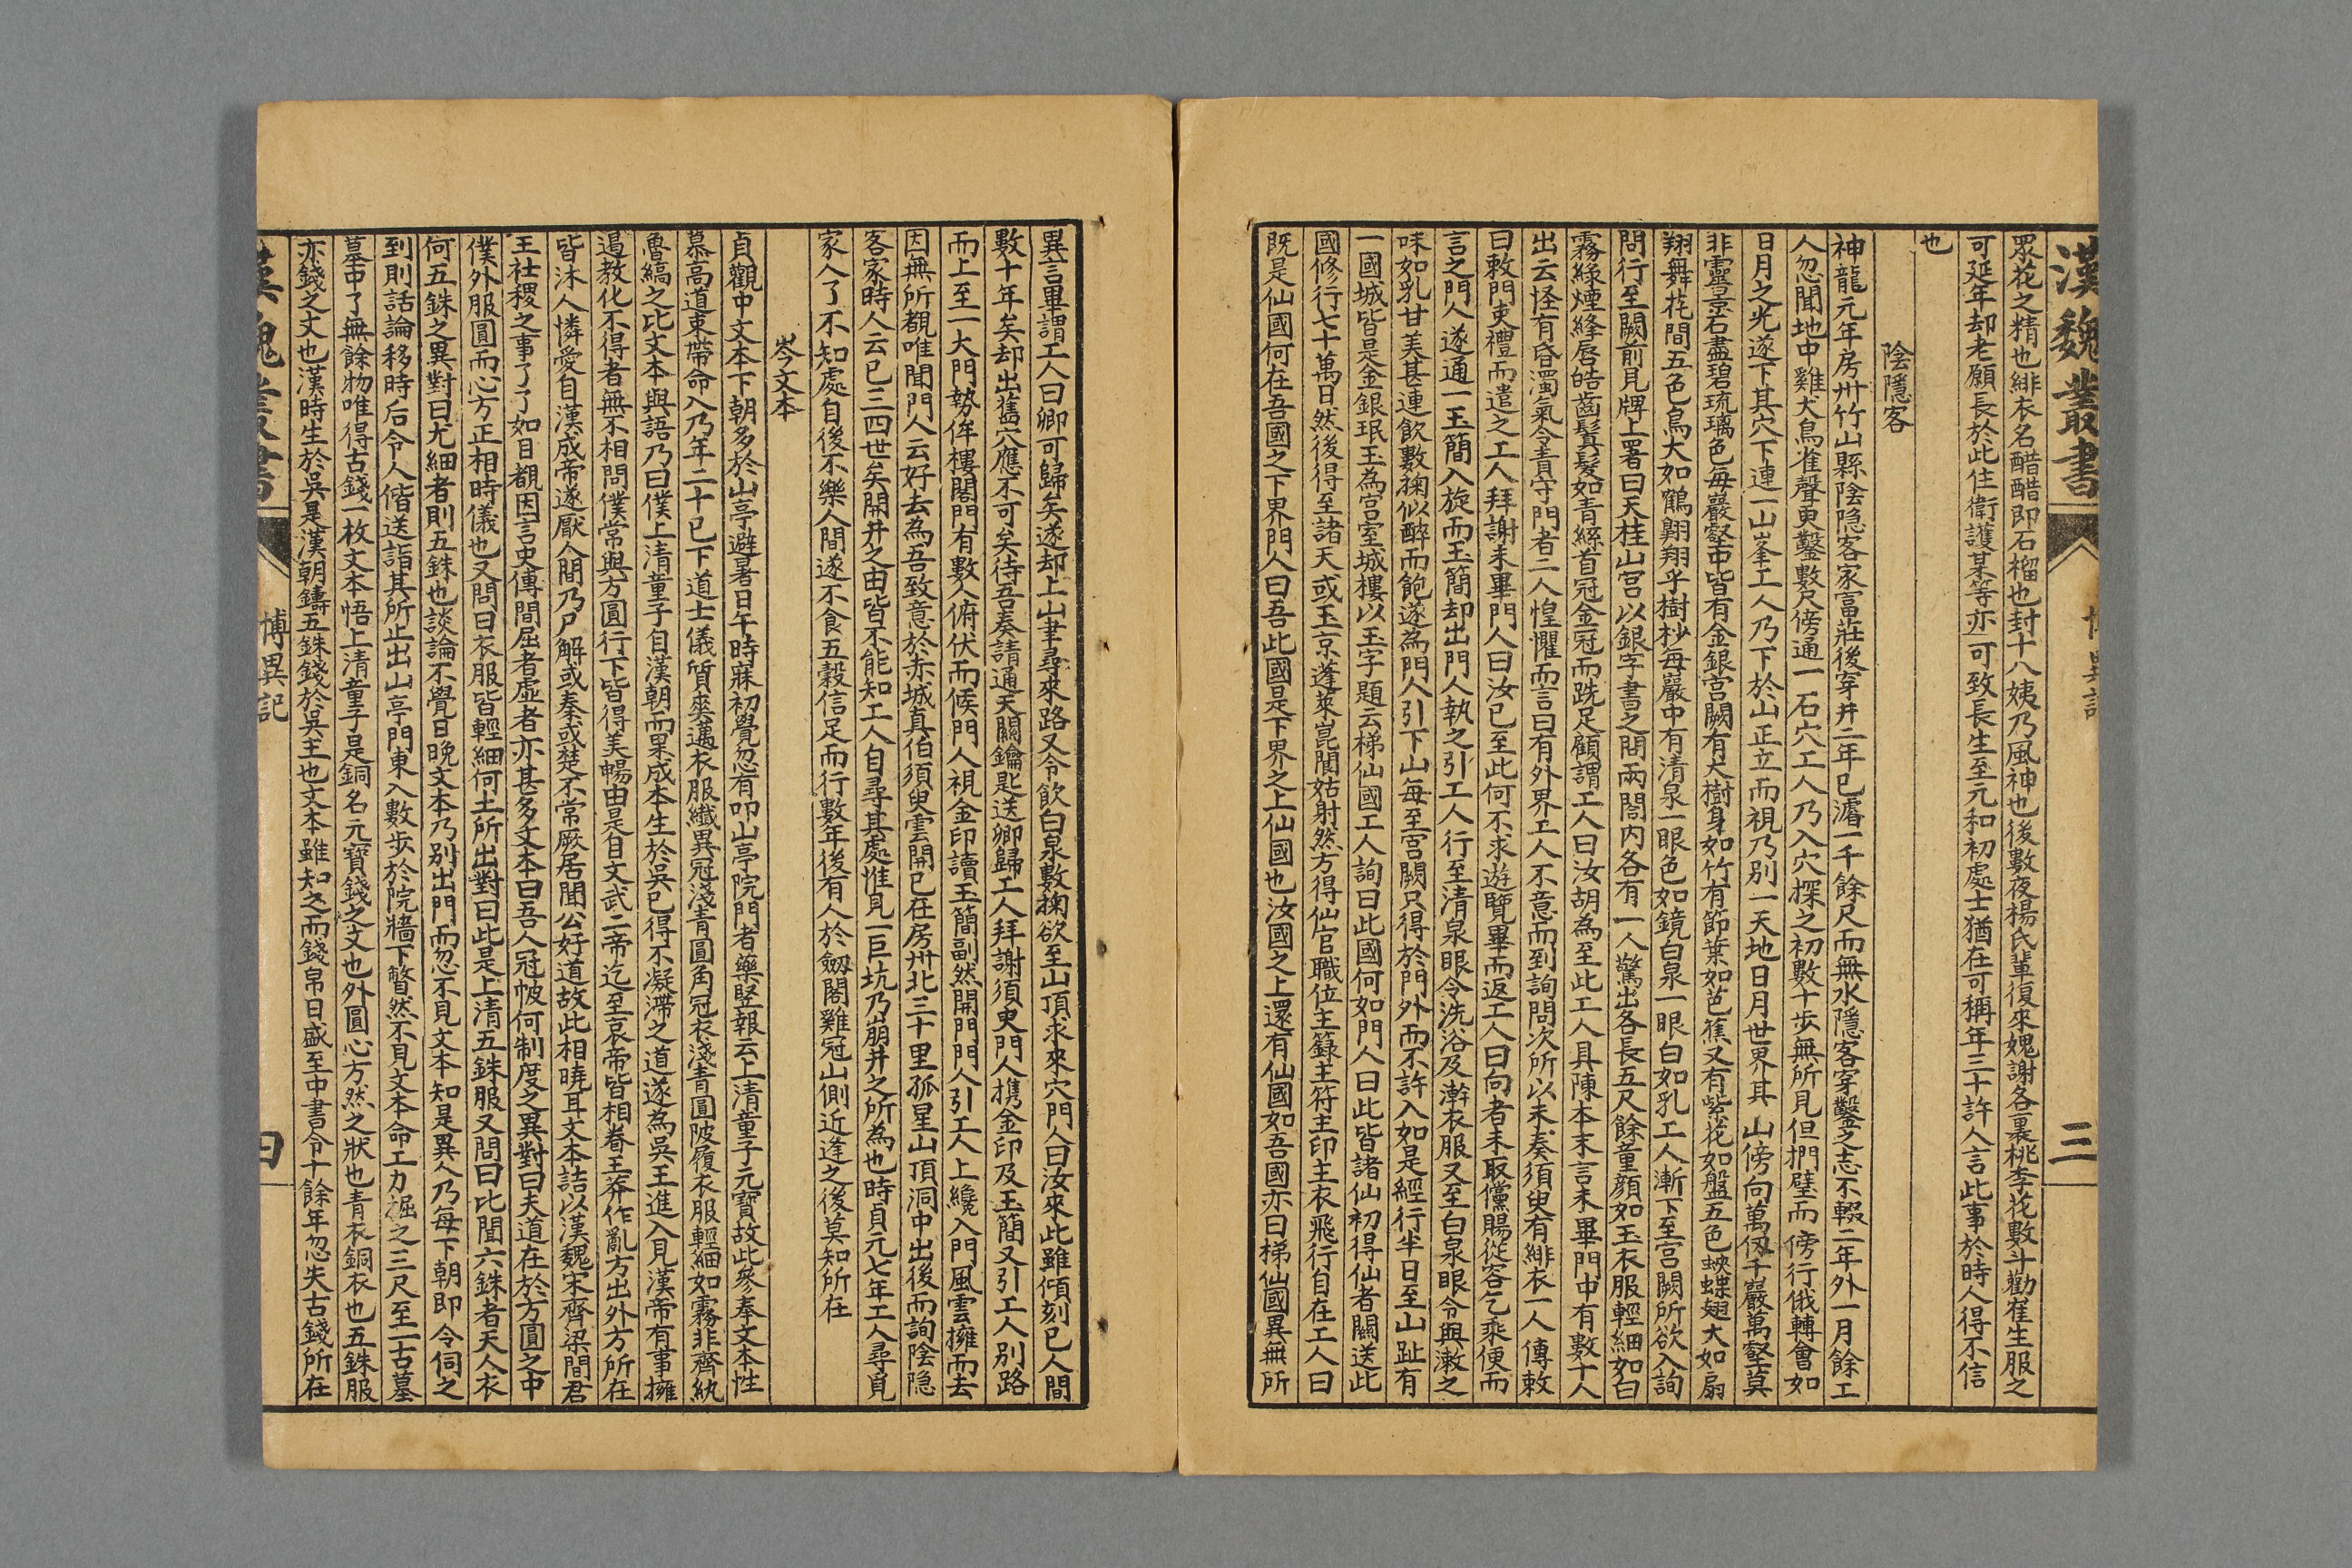 漢魏叢書
博異記
三
眾花之精也緋衣名醋醋即石榴也封十八姨乃風神也後數夜楊氏輩復來媿謝各裹桃李花數斗勸崔生服之
可延年却老願長於此住衛護某等亦可致長生至元和初處士猶在可稱年三十許人言此事於時人得不信
也
陰隱客
神龍元年房州竹山縣陰隐客家富莊後穿井二年已濬一千餘尺而無水隱客穿鑿之志不輟二年外一月餘工
人忽聞地中雞犬鳥雀聲更鑿數尺傍通一石穴工人乃入穴探之初數十步無所見但捫璧而傍行俄轉會如
日月之光遂下其穴下連一山峯工人乃下於山正立而視乃别一天地日月世界其山傍向萬仭千巖萬壑莫
非靈景石盡碧琉璃色每巖壑中皆有金銀宫闕有大樹身如竹有節葉如芭蕉又有紫花如盤五色蛺蝶翅大如扇
翔舞花間五色鳥大如鶴翱翔乎樹杪每巖中有清泉一眼色如鏡白泉一眼白如乳工人漸下至宫闕所欲入詢
問行至闕前見牌上署曰天桂山宫以銀字書之門兩閤内各有一人驚出各長五尺餘童顔如玉衣服輕細如白
霧綠煙絳唇皓齒鬒髮如青絲首冠金冠而跣足顧謂工人曰汝胡為至此工人具陳本末言未畢門中有數十人
出云怪有昏濁氣令責守門者二人惶懼而言曰有外界工人不意而到詢問次所以未奏須臾有緋衣一人傳敕
曰敕門吏禮而遣之工人拜謝未畢門人曰汝已至此何不求遊覽畢而返工人曰向者未取儻賜從容乞乘便而
言之門人遂通一玉簡入旋而玉簡却出門人執之引工人行至清泉眼令洗浴及澣衣服又至白泉眼令與漱之
味如乳甘美甚連飲數掬似醉而飽遂為門人引下山每至宫闕只得於門外而不許入如是經行半日至山趾有
一國城皆是金銀珉玉為宫室城樓以玉字題云梯仙國工人詢曰此國何如門人曰此皆諸仙初得仙者關送此
國修行七十萬日然後得至諸天或玉京蓬萊崑閬姑射然方得仙官職位主籙主符主印主衣飛行自在工人曰
既是仙國何在吾國之下界門人曰吾此國是下界之上仙國也汝國之上還有仙國如吾國亦曰梯仙國異無所
異言畢謂工人曰卿可歸矣遂却上山聿尋來路又令飲白泉數掬欲至山頂求來穴門人曰汝來此雖傾刻已人間
數十年矣却出舊穴應不可矣待吾奏請通天關鑰匙送卿歸工人拜謝須臾門人攜金印及玉簡又引工人别路
而上至一大門勢侔樓閣門有數人俯伏而候門人視金印讀玉簡副然開門門人引工人上纔入門風雲擁而去
因無所覩唯聞門人云好去為吾致意於赤城真伯須臾雲開已在房州北三十里孤星山頂洞中出後而詢陰隐
客家時人云已三四世矣開井之由皆不能知工人自尋其處惟見一巨坑乃崩井之所為也時貞元七年工人尋覓
家人了不知處自後不樂人間遂不食五穀信足而行數年後有人於劔閣雞冠山側近逢之後莫知所在
岑文本
貞觀中文本下朝多於山亭避暑日午時寐初覺忽有叩山亭院門者藥竪報云上清童子元寶故此參奉文本性
慕高道束帶命入乃年二十已下道士儀質爽邁衣服纖異冠淺青圓角冠衣淺青圓陂履衣服輕細如霧非齊紈
魯縞之比文本與語乃曰僕上清童子自漢朝而果成本生於吳已得不凝滯之道遂為吳王進入見漢帝有事擁
遏教化不得者無不相問僕常與方圓行下皆得美暢由是自文武二帝迄至哀帝皆相眷王莽作亂方出外方所在
皆沐人憐愛自漢成帝遂厭人間乃尸解或秦或楚不常厥居聞公好道故此相曉耳文本詰以漢魏宋齊梁間君
王社稷之事了了如目覩因言史傳間屈者虛者亦甚多文本曰吾人冠帔何制度之異對曰夫道在於方圓之中
僕外服圓而心方正相時儀也又問曰衣服皆輕細何土所出對曰此是上清五銖服又問曰比聞六銖者天人衣
何五銖之異對曰尤細者則五銖也談論不覺日晚文本乃别出門而忽不見文本知是異人乃每下朝即令伺之
到則話論移時后令人偕送詣其所止出山亭門東入數步於院牆下瞥然不見文本命工力掘之三尺至一古墓
墓中了無餘物唯得古錢一枚文本悟上清童子是銅名元寶錢之文也外圓心方然之狀也青衣銅衣也五銖服
亦錢之文也漢時生於吳是漢朝鑄五銖錢於吳王也文本雖知之而錢帛日盛至中書令十餘年忽失古錢所在
漢魏叢書
博異記
四